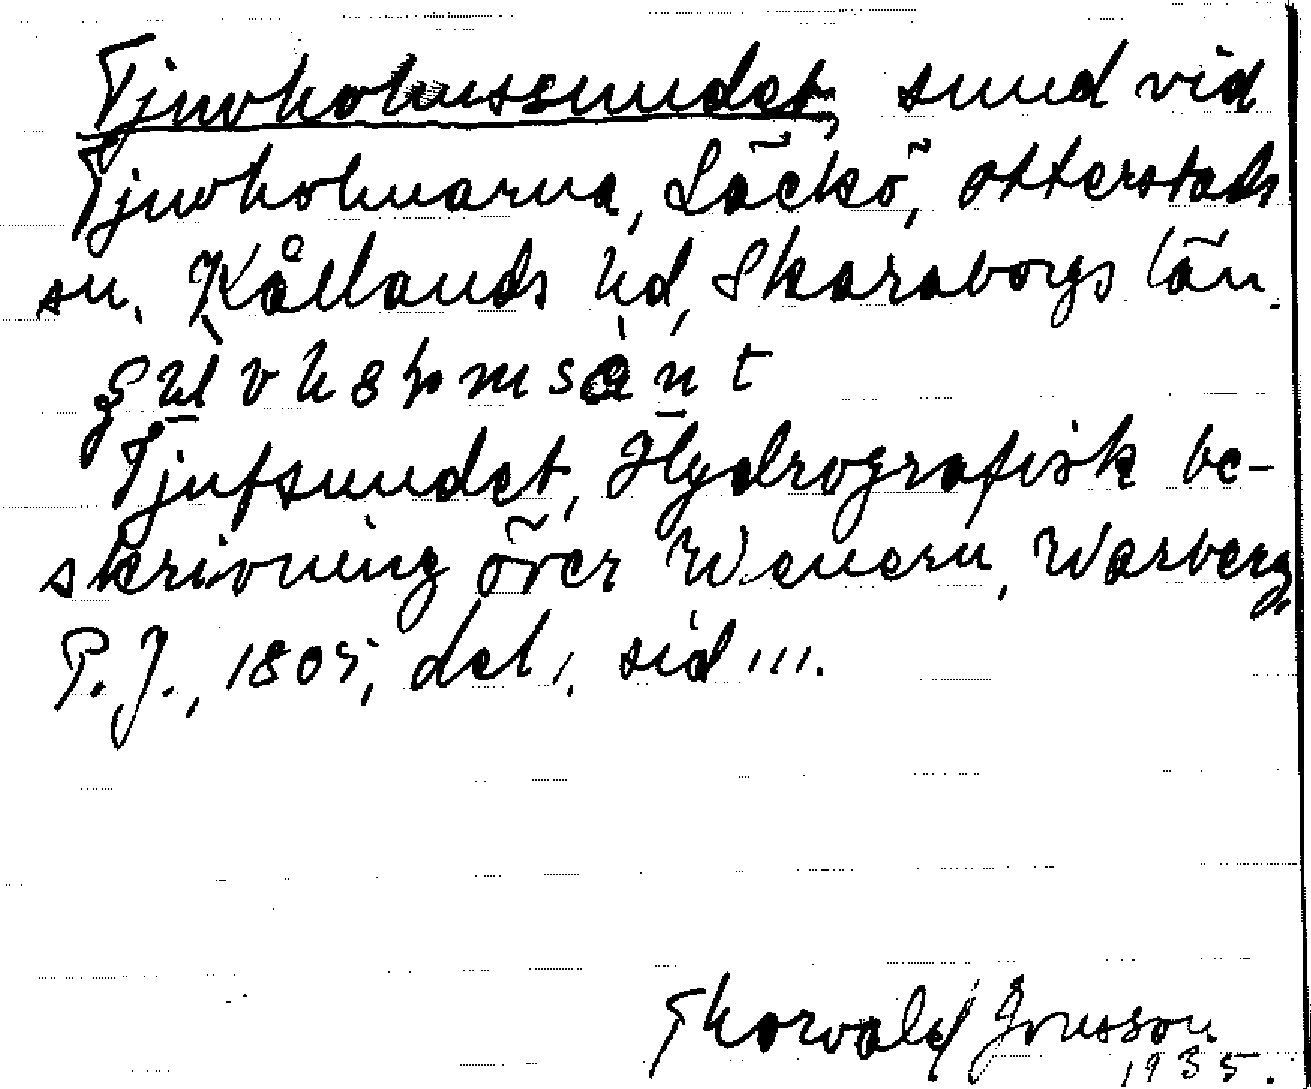 Tjuvholmssundet, sund vid
Tjuvholmarna, Läckö, Otterstads
sn. Kållands hd, Skaraborgs län.
Tjufsundet, Hydrografisk be-
skrivning över Wenern, Warberg,
P. J., 1805, del 1, sid 111.
Thorvald Jonsson
1935.